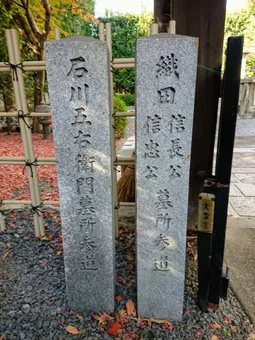 織田信長公
信忠公
墓所参道
石川五右衛門墓所参道